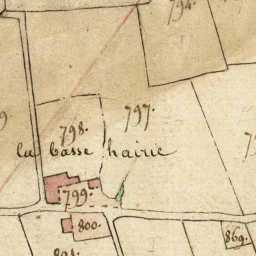 794.
797.
798.
la basse hairie
799.
800.
869.